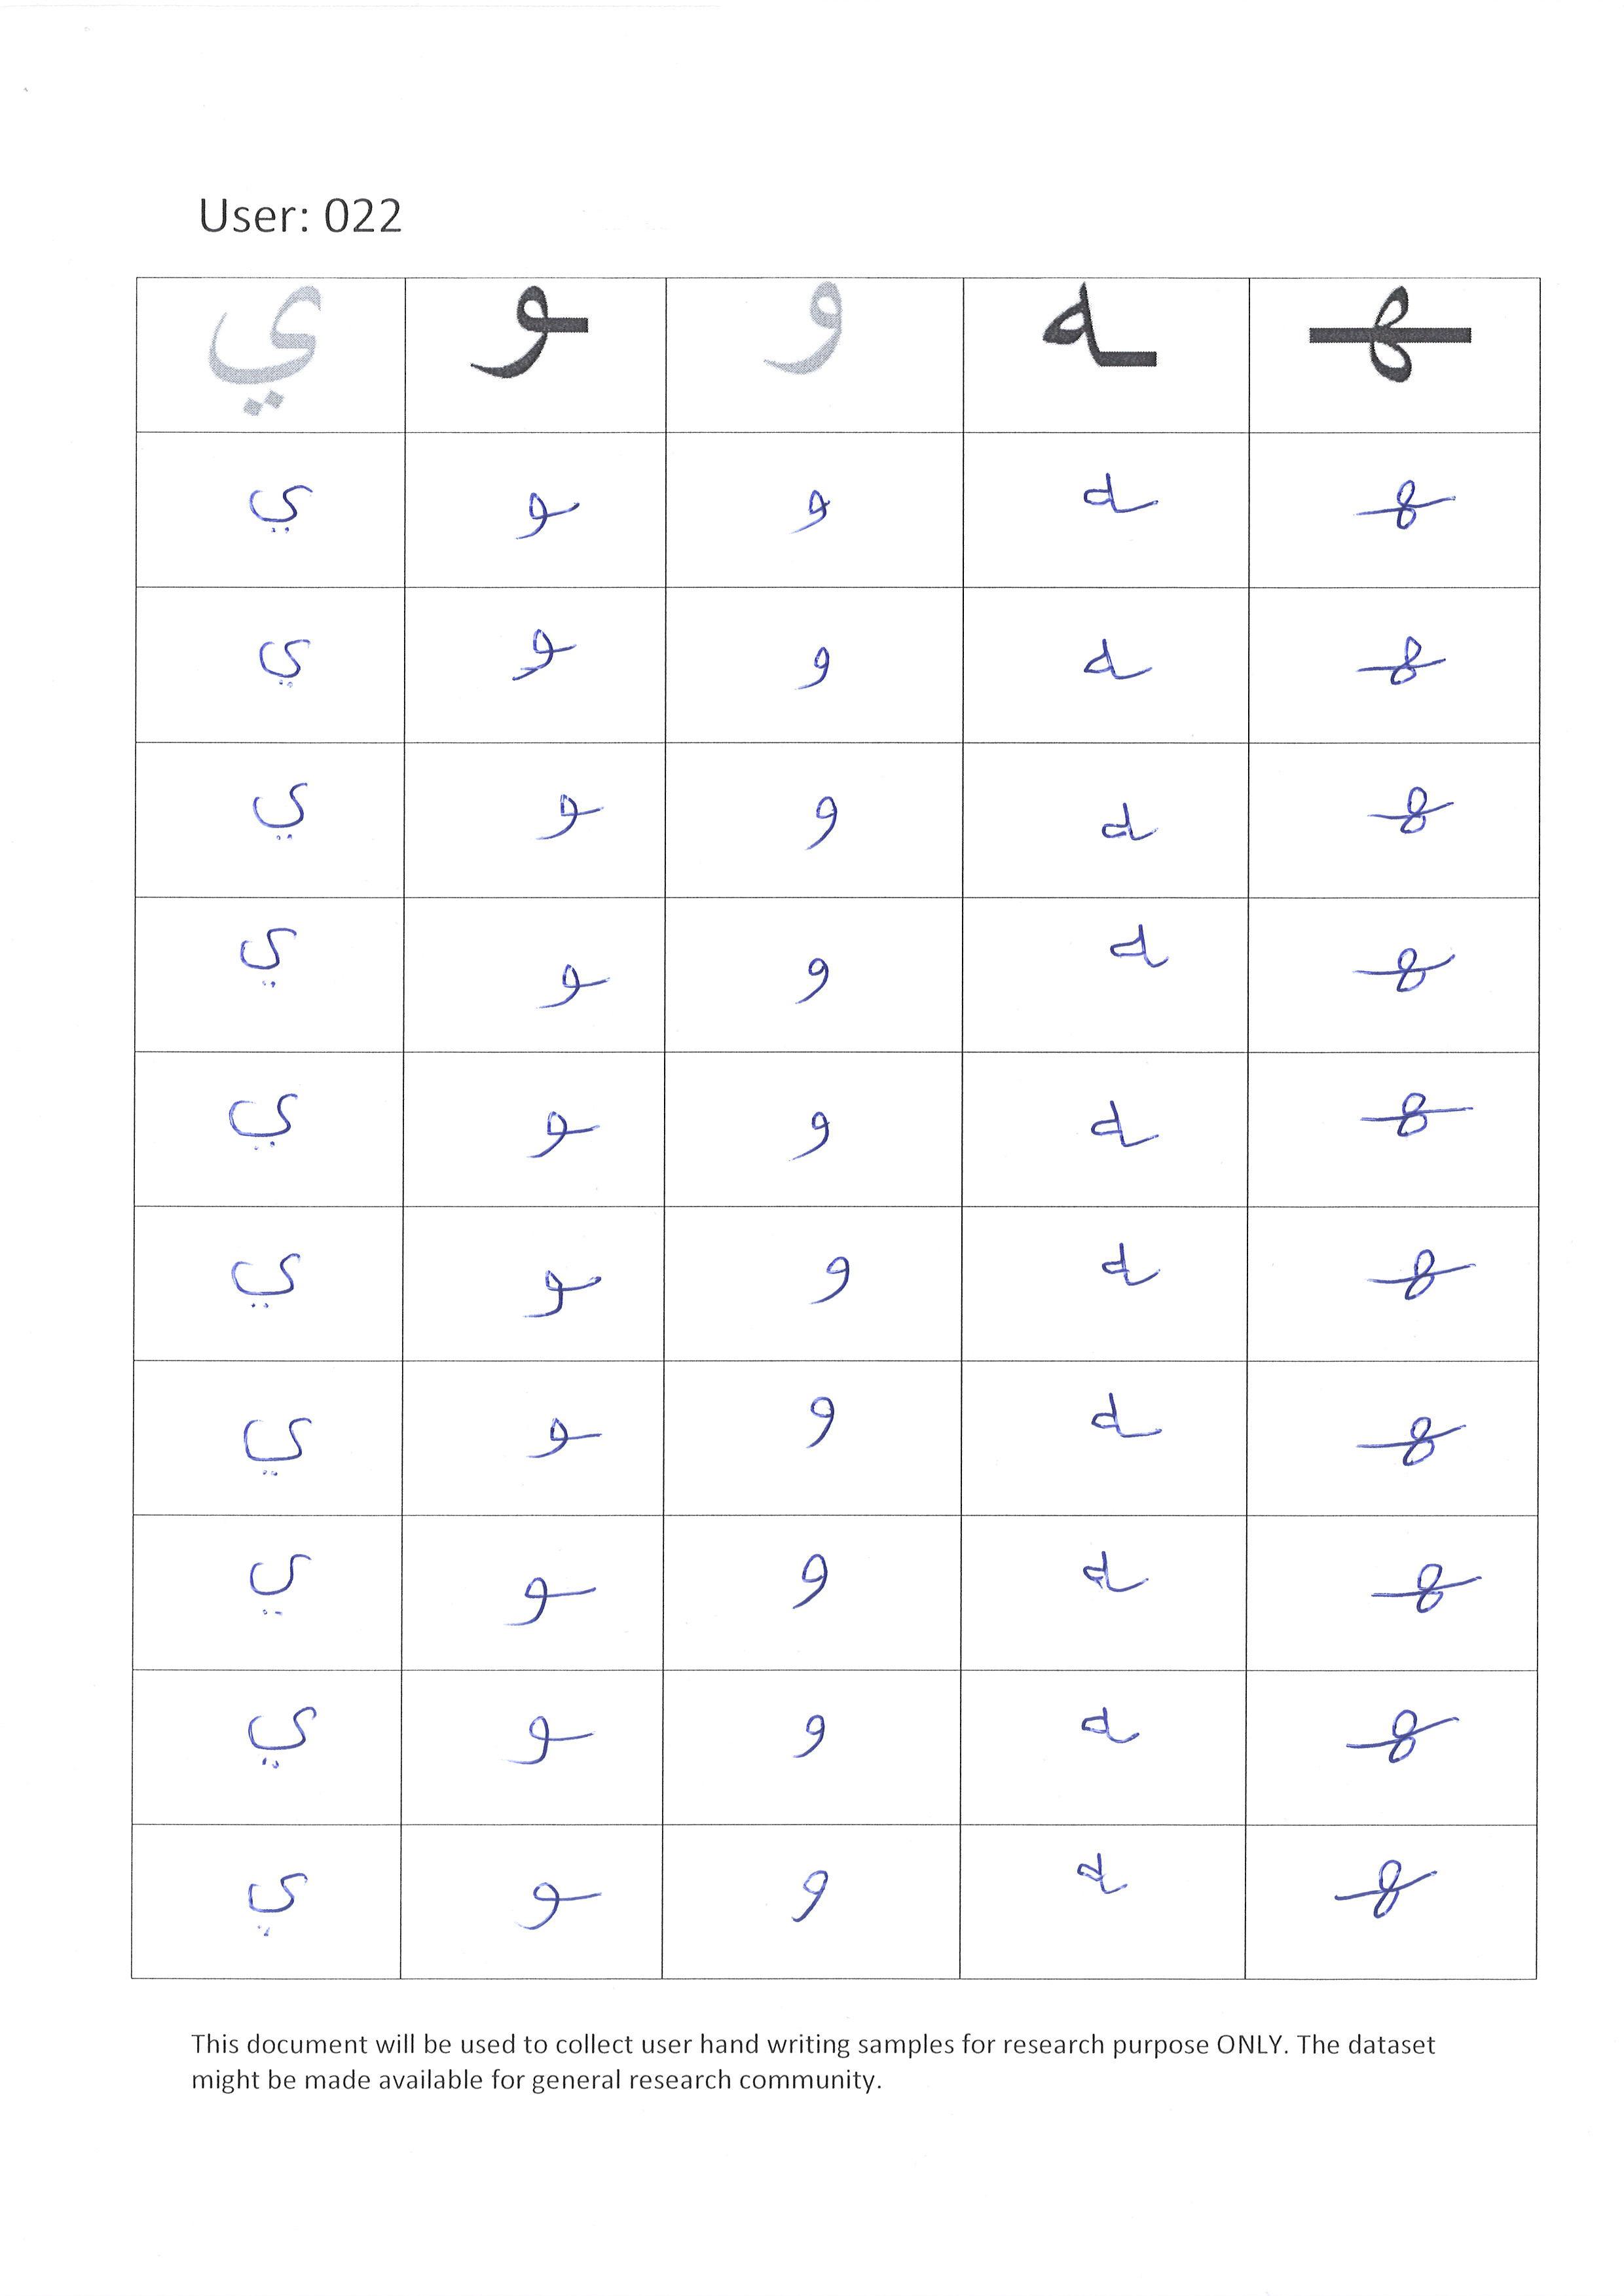 User: 022
ي ـو و ـه ـهـ
ي ـو و ـه ـهـ
ي ـو و ـه ـهـ
ي ـو و ـه ـهـ
ي ـو و ـه ـهـ
ي ـو و ـه ـهـ
ي ـو و ـه ـهـ
ي ـو و ـه ـهـ
ي ـو و ـه ـهـ
ي ـو و ـه ـهـ
ي ـو و ـه ـهـ
This document will be used to collect user hand writing samples for research purpose ONLY. The dataset
might be made available for general research community.